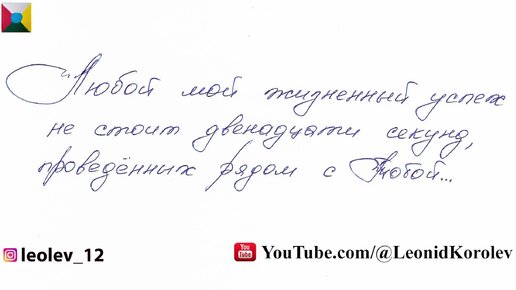 Любой мой жизненный успех
не стоит двенадцати секунд,
проведённых рядом с Тобой...
leolev_12
YouTube.com/@LeonidKorolev